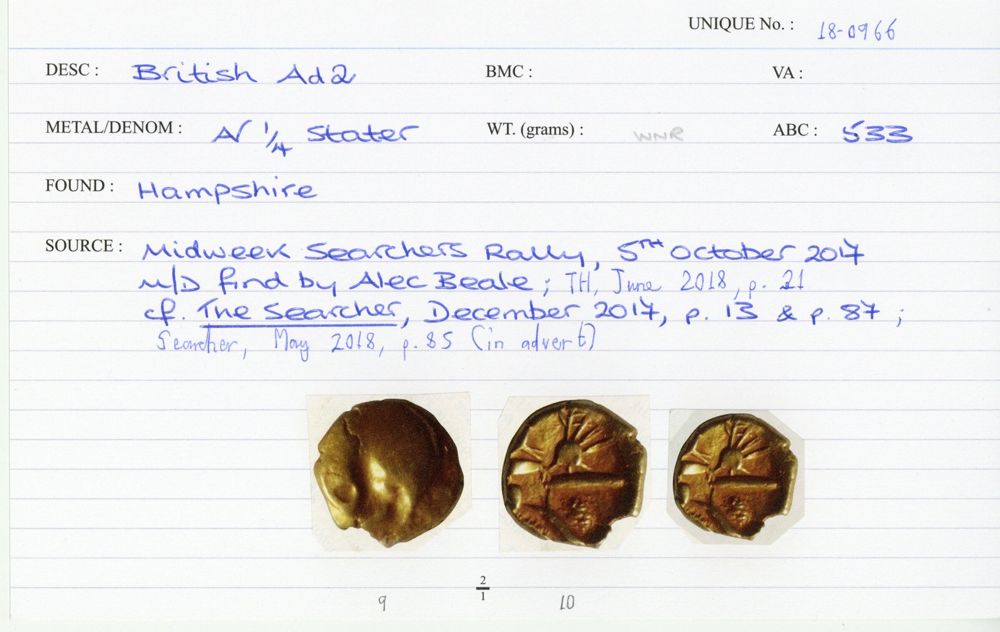 UNIQUE No. : 18-0966
DESC : British Ad2 BMC : VA :
METAL/DENOM : AV 1/4 Stater WT. (grams) : WNR ABC : 533
FOUND : Hampshire
SOURCE : Midweek Searchers Rally, 5TH October 2017
M/D find by Alec Beale; TH, June 2018, p. 21
cf. The Searcher, December 2017, p. 13 & p. 87 ;
Searcher, May 2018, p.85 (in advert)
2/1
9 10